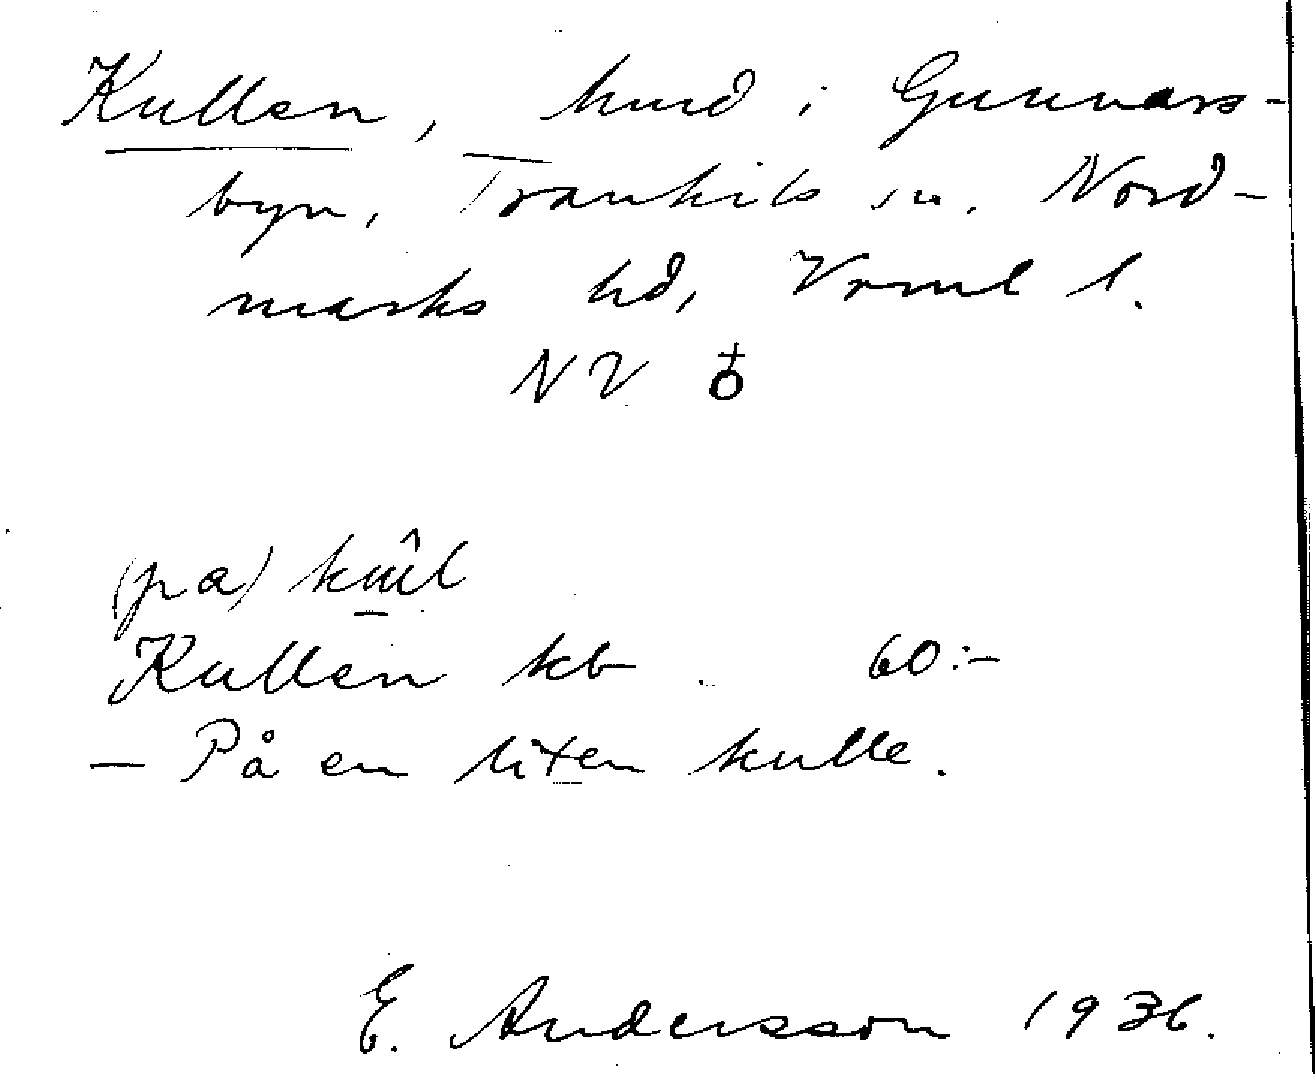 Kullen, hmd i Gunnars-
byn, Trankils sn. Nord-
marks hd, Vrml l.
NV ♁
(på)
Kullen kb 60:-
— På en liten kulle.
E. Andersson 1936.